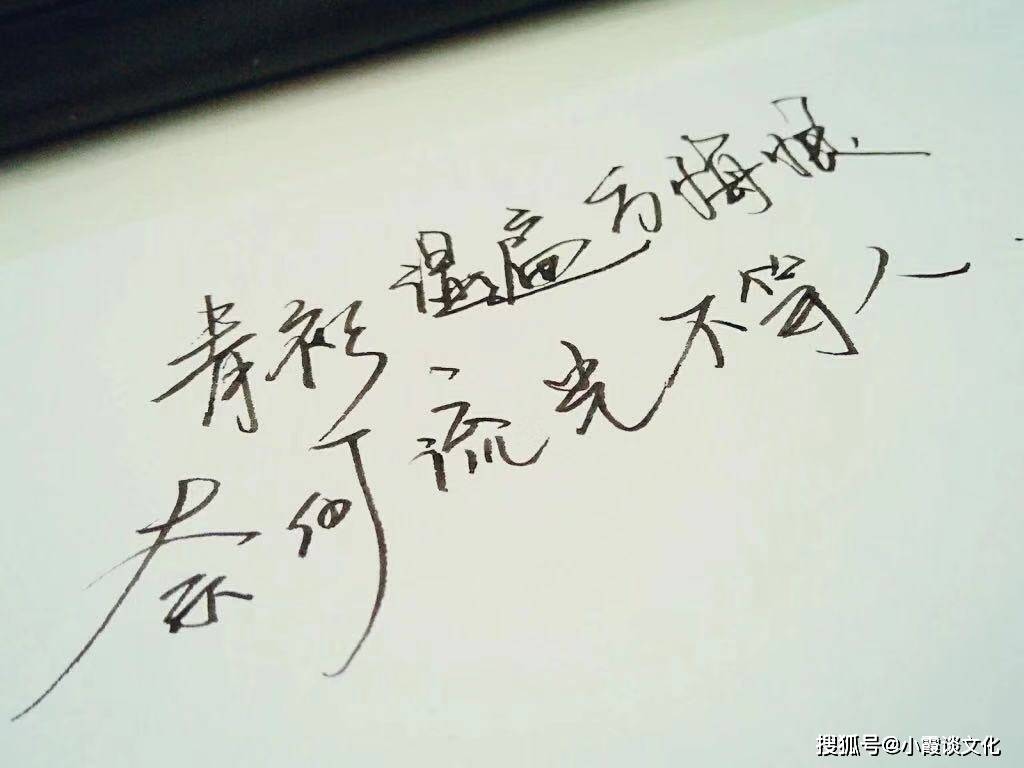 青衫湿遍方悔恨
奈何流光不等人
搜狐号@小霞谈文化